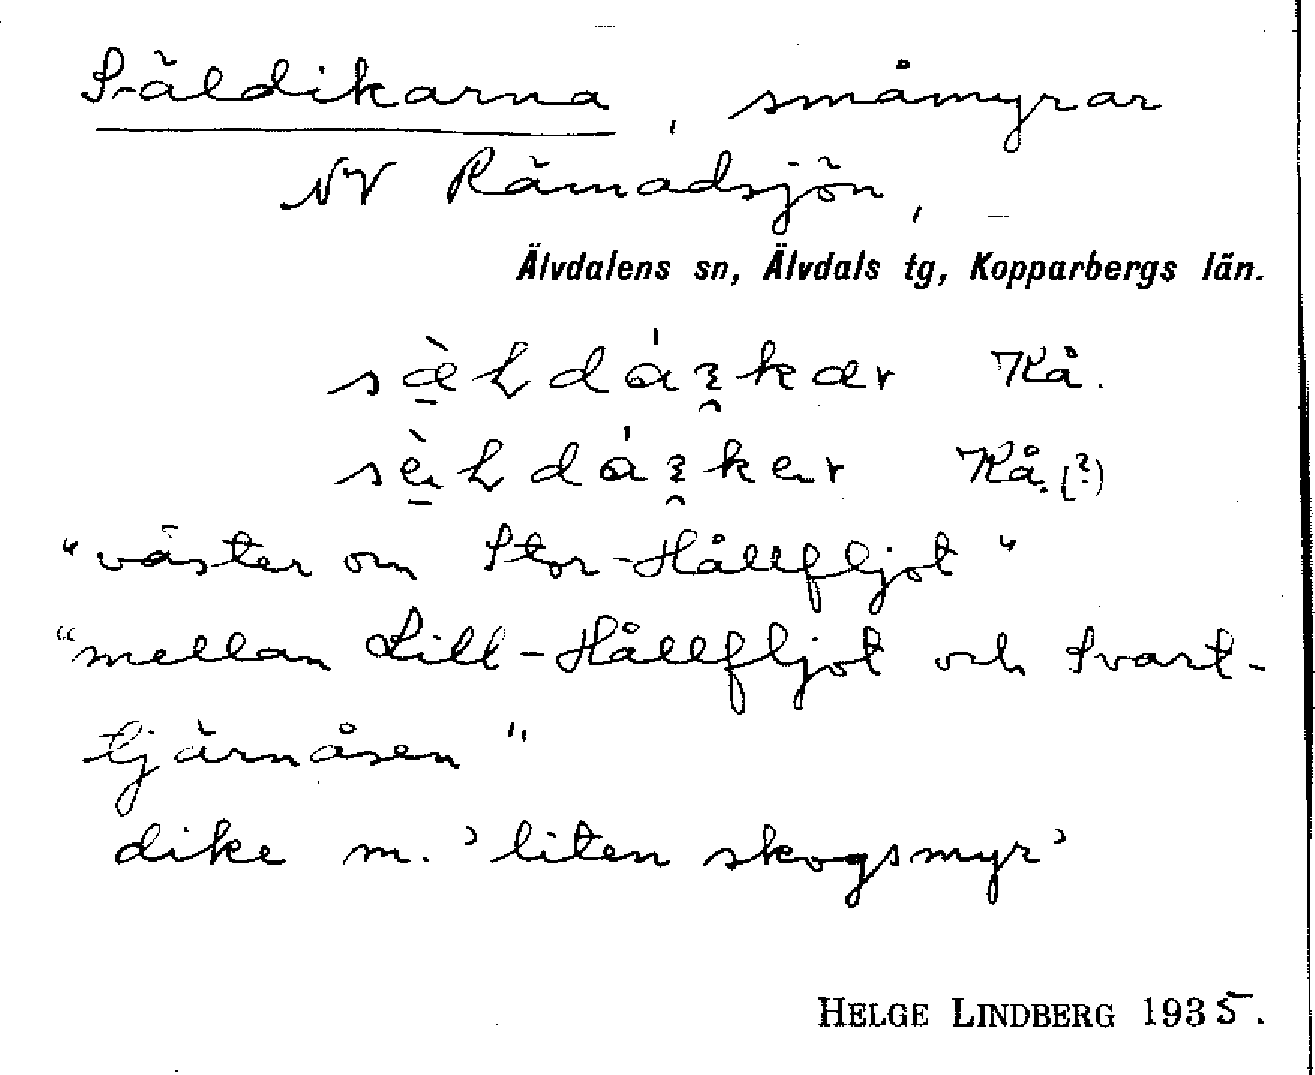 Säldikarna, småmyrar
NV Rämadsjön,
Älvdalens sn, Älvdals tg, Kopparbergs län.
Kå.
Kå.(?)
"väster om Stor-Hållfljot"
"mellan Lill-Hållfljot och Svart-
tjärnåsen"
dike m. 'liten skogsmyr'
HELGE LINDBERG 1935.